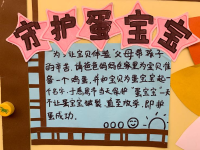 守护蛋宝宝
为了让宝贝体验"父母带孩子
的辛苦,请爸爸妈妈在家里为宝贝准
备一个鸡蛋,并和宝贝为蛋宝宝起一
个名字,于
不让蛋宝宝破裂,直至放学,即护
蛋成功。